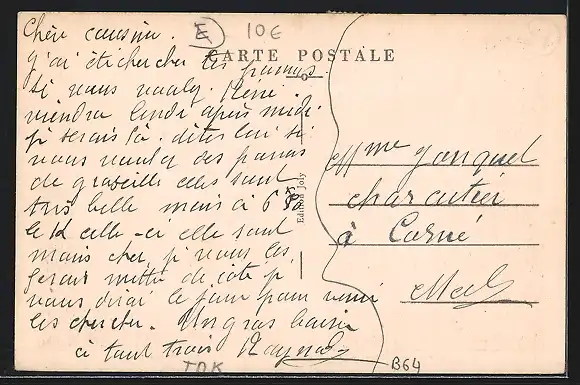 Chère cousine.
E
10€
CARTE POSTALE
J'ai été chercher les
Si vous voulez. René.
viendra lundi après midi.
je serais là. dites lui si
vous voulez des
de groseille elles sont
très belle mais à 6
le K celle-ci elle sont
moins cher, je vous les
ferais mettre de côté je
vous dirai le jour pour venir
les chercher. Un gros baiser
à tout trois Raymonde
Edition Joly
Mme Jouquel
charcutier
à Corné
M et L
B64